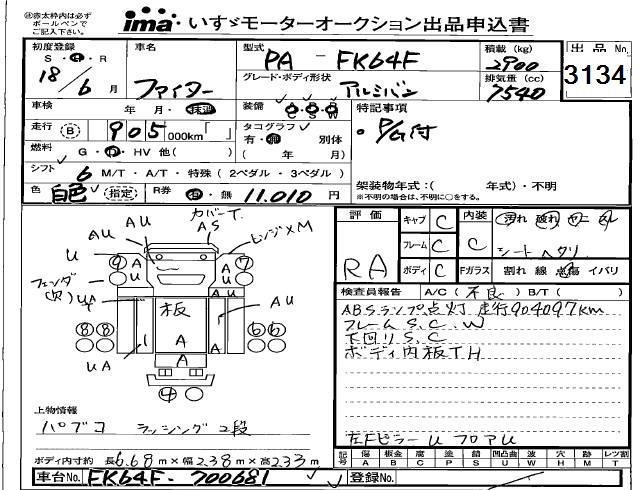 ㊟赤太枠内は必ず
ボールペンで
ご記入下さい。
ima いすゞモーターオークション出品申込書
初度登録
S・H・R
18/6月
車名
ファイター
型式
PA - FK64F
グレード・ボディ形状
アルミバン
積載(kg)
2900
排気量(cc)
7540
出品No.
3134
車検 年 月・抹消
装備
特記事項
・P/G付
走行 B 905,000km「 」
タコグラフ
有・無 別体
( 年 月)
燃料 G・D・HV 他( )
シフト 6 M/T・A/T・特殊(2ペダル・3ペダル)
架装物年式:( 年式)・不明
※不明の場合は、不明に○をする。
色 白色 (指定) R券 有・無 11,010円
評価
RA
キャブ C
フレーム C
ボディ C
内装 C
汚れ 破れ
シートヘタリ
Fガラス 割れ 線 点傷 イバリ
検査員報告 A/C(不良) B/T( )
ABSランプ点灯 走行904097km
フレームS.C.W
下回りS.C
ボディ内板TH
左Fピラーu フロアu
カバーT
AS
AU
AU
U
エンジンXM
9
7
A
A
A
U
U
フェンダ
UA
板
AU
8 8
6 6
UA
A
A
A
4
上物情報
パブコ ラッシング2段
ボディ内寸約 長6.68m×幅2.38m×高2.33m
車台No. FK64F-700681
登録No.
記号 傷A 板金B 腐C 塗P サビS 凹凸曲U 割W 穴H 跡M レツ割T